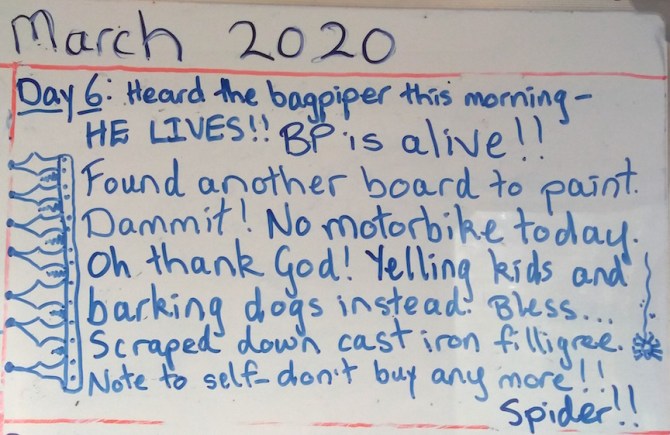 March 2020
Day 6: Heard the bagpiper this morning-
HE LIVES!! BP is alive!!
Found another board to paint.
Dammit! No motorbike today.
Oh thank God! Yelling kids and
barking dogs instead. Bless...
Scraped down cast iron filligree.
Note to self-don't buy any more!!
Spider!!